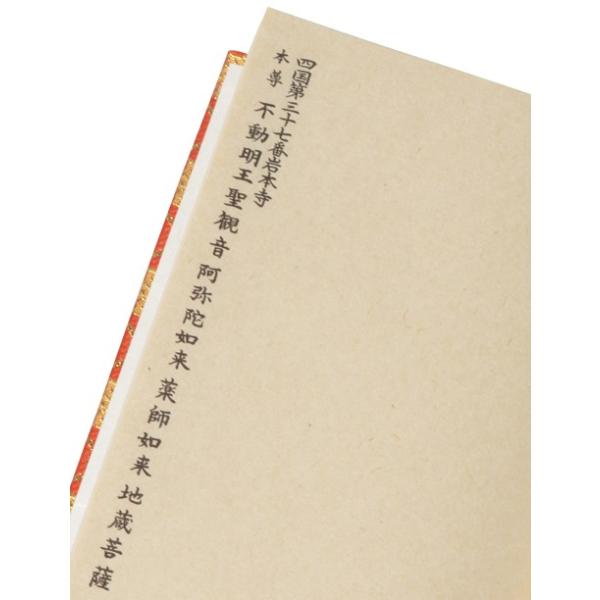 四国第三十七番岩本寺
本尊 不動明王聖観音阿弥陀如来薬師如来地蔵菩薩